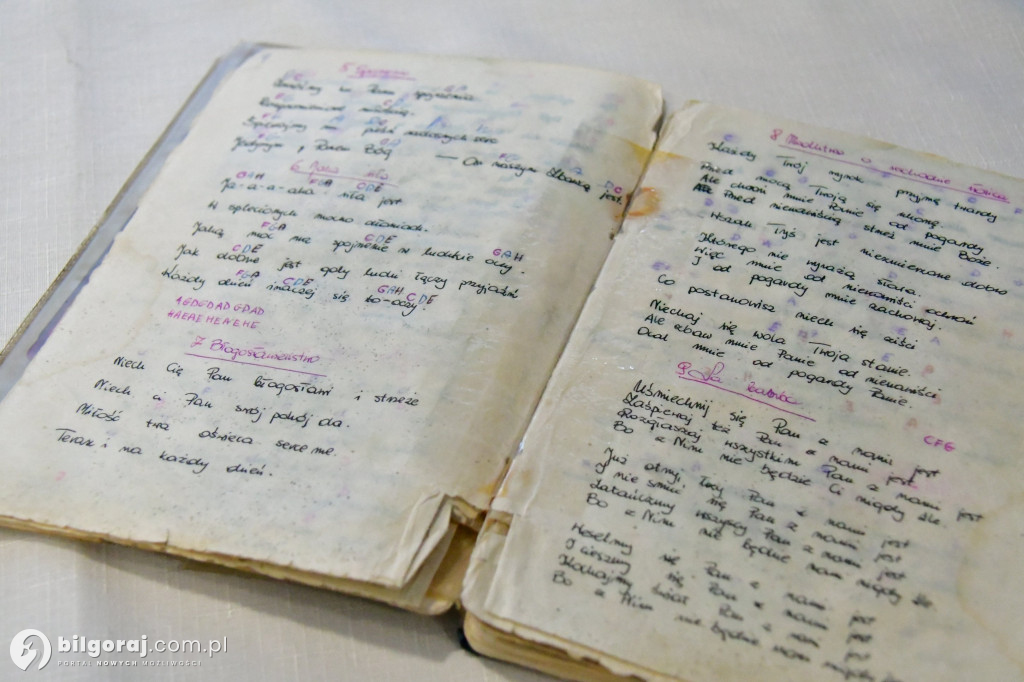 5
to Pan
Jedyny, Panie Bóg — On naszym
6 Jaka siła
G A H F G A C D E
Ja-a-a-aka siła jest
W splecionych mocno dłoniach.
F G A C D E G A H
Jakąż moc ma spojrzenie w ludzkie oczy.
C D E
Jak dobrze jest gdy ludzi łączy przyjaźń
F G A C D E G A H C D E
Każdy dzień inaczej się to-czy!
1 G D G D A D G D A D
H A E A E H E H E H E
7 Błogosławieństwo
Niech Cię Pan błogosławi i strzeże
Niech a Pan swój pokój da.
Miłość twa oświeca serce me.
Teraz i na każdy dzień.
8 Modlitwa o wschodzie słońca
Każdy Twój wyrok przyjmę twardy
Przed mocą Twoją się ukorzę.
Ale chroń mnie Panie od pogardy
Ale Przed nienawiścią strzeż mnie Boże.
Wszak Tyś jest niezmierzone dobro
Którego nie wyrażą słowa.
Więc mnie od nienawiści ochroń
I od pogardy mnie zachowaj.
Co postanowisz niech się ziści
Niechaj się wola Twoja stanie.
Ale zbaw mnie Panie od nienawiści
Ocal mnie od pogardy Panie.
9
C F G
Uśmiechnij się Pan z nami jest
Zaśpiewaj też Pan z nami jest
Rozgłaszaj wszystkim Pan z nami jest
Bo z Nim nie będzie Ci nigdy źle.
Już otrzyj łzy Pan z nami jest
I nie smuć się Pan z nami jest
Zatańczmy wszyscy Pan z nami jest
Bo z Nim nie będzie nam nigdy źle
Weselmy się Pan z nami jest
I cieszmy się Pan z nami jest
Kochajmy świat Pan z nami jest
Bo z Nim nie będzie nam nigdy źle
bilgoraj.com.pl
PORTAL NOWYCH MOŻLIWOŚCI